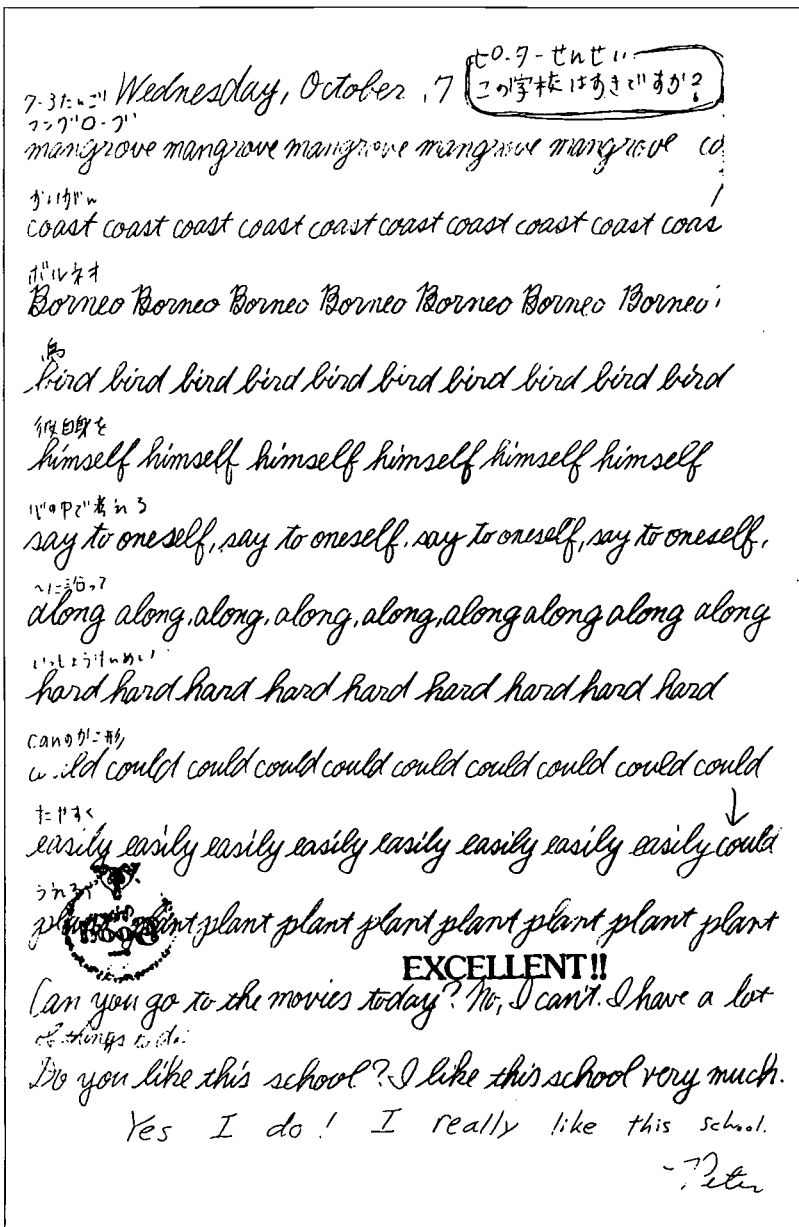 ピーターせんせい
この学校はすきですか?
Wednesday, October 7
マングローブ
mangrove mangrove mangrove mangrove mangrove co
かいがん
coast coast coast coast coast coast coast coast coast coas
ボルネオ
Borneo Borneo Borneo Borneo Borneo Borneo Borneo
鳥
bird bird bird bird bird bird bird bird bird bird
彼自身を
himself himself himself himself himself himself
心の中で考える
say to oneself, say to oneself, say to oneself, say to oneself,
~に沿って
along along, along, along, along, along along along along
いっしょうけんめい
hard hard hard hard hard hard hard hard hard
canのかこ形
could could could could could could could could could
たやすく
easily easily easily easily easily easily easily easily could
うえる
plant plant plant plant plant plant plant plant
EXCELLENT!!
Can you go to the movies today? No, I can't. I have a lot
of things to do.
Do you like this school? I like this school very much.
Yes I do! I really like this school.
-Peter